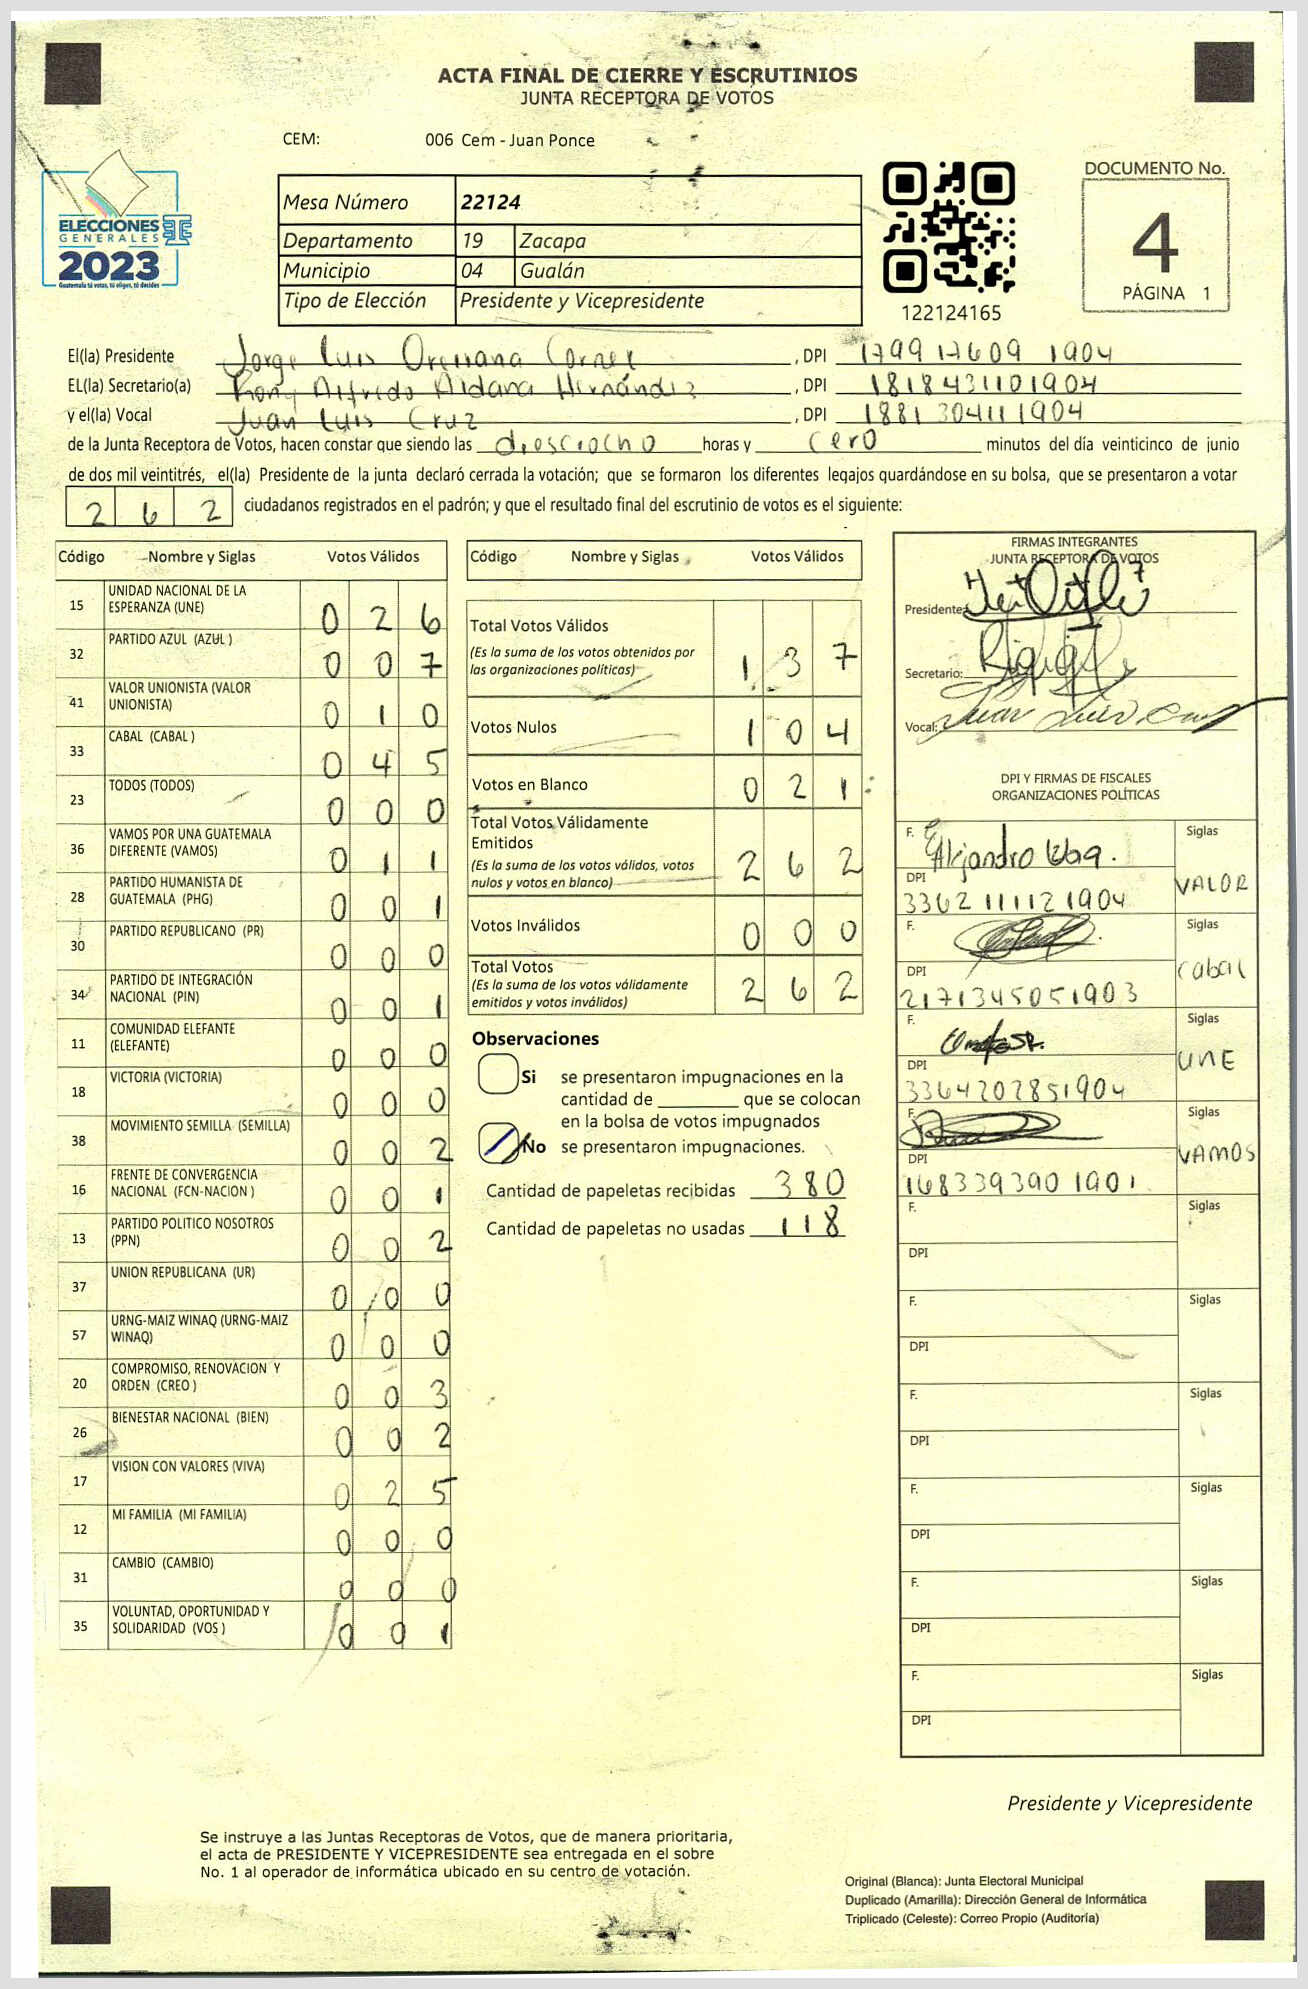 ACTA FINAL DE CIERRE Y ESCRUTINIOS
JUNTA RECEPTORA DE VOTOS
CEM: 006 Cem - Juan Ponce
ELECCIONES
GENERALES
2023
Guatemala tú votas, tú eliges, tú decides
Mesa Número 22124
Departamento 19 Zacapa
Municipio 04 Gualán
Tipo de Elección Presidente y Vicepresidente
122124165
DOCUMENTO No.
4
PÁGINA 1
El(la) Presidente Jorge Luis Orellana , DPI 1799 17609 1904
EL(la) Secretario(a) Rony Alfredo Aldana Hernández , DPI 1818431101904
y el(la) Vocal Juan Luis Cruz , DPI 1881 304111904
de la Junta Receptora de Votos, hacen constar que siendo las diesciocho horas y cero minutos del día veinticinco de junio
de dos mil veintitrés, el(la) Presidente de la junta declaró cerrada la votación; que se formaron los diferentes legajos quardándose en su bolsa, que se presentaron a votar
2 6 2 ciudadanos registrados en el padrón; y que el resultado final del escrutinio de votos es el siguiente:
Código Nombre y Siglas Votos Válidos
15 UNIDAD NACIONAL DE LA
ESPERANZA (UNE) 0 2 6
32 PARTIDO AZUL (AZUL ) 0 0 7
41 VALOR UNIONISTA (VALOR
UNIONISTA) 0 1 0
33 CABAL (CABAL ) 0 4 5
23 TODOS (TODOS) 0 0 0
36 VAMOS POR UNA GUATEMALA
DIFERENTE (VAMOS) 0 1 1
28 PARTIDO HUMANISTA DE
GUATEMALA (PHG) 0 0 1
30 PARTIDO REPUBLICANO (PR) 0 0 0
34 PARTIDO DE INTEGRACIÓN
NACIONAL (PIN) 0 0 1
11 COMUNIDAD ELEFANTE
(ELEFANTE) 0 0 0
18 VICTORIA (VICTORIA) 0 0 0
38 MOVIMIENTO SEMILLA (SEMILLA) 0 0 2
16 FRENTE DE CONVERGENCIA
NACIONAL (FCN-NACION ) 0 0 1
13 PARTIDO POLITICO NOSOTROS
(PPN) 0 0 2
37 UNION REPUBLICANA (UR) 0 0 0
57 URNG-MAIZ WINAQ (URNG-MAIZ
WINAQ) 0 0 0
20 COMPROMISO, RENOVACION Y
ORDEN (CREO ) 0 0 3
26 BIENESTAR NACIONAL (BIEN) 0 0 2
17 VISION CON VALORES (VIVA) 0 2 5
12 MI FAMILIA (MI FAMILIA) 0 0 0
31 CAMBIO (CAMBIO) 0 0 0
35 VOLUNTAD, OPORTUNIDAD Y
SOLIDARIDAD (VOS ) 0 0 1
Código Nombre y Siglas Votos Válidos
Total Votos Válidos
(Es la suma de los votos obtenidos por
las organizaciones políticas) 1 3 7
Votos Nulos 1 0 4
Votos en Blanco 0 2 1
Total Votos Válidamente
Emitidos
(Es la suma de los votos válidos, votos
nulos y votos en blanco) 2 6 2
Votos Inválidos 0 0 0
Total Votos
(Es la suma de los votos válidamente
emitidos y votos inválidos) 2 6 2
Observaciones
Si se presentaron impugnaciones en la
cantidad de ________ que se colocan
en la bolsa de votos impugnados
No se presentaron impugnaciones.
Cantidad de papeletas recibidas 380
Cantidad de papeletas no usadas 118
FIRMAS INTEGRANTES
JUNTA RECEPTORA DE VOTOS
Presidente:
Secretario:
Vocal: Juan Luis Cruz
DPI Y FIRMAS DE FISCALES
ORGANIZACIONES POLÍTICAS
F. Alejandro Siglas
DPI VALOR
3362 11112 1904
F. Siglas
DPI Cabal
2171345051903
F. Siglas
DPI UNE
3364202851904
F. Siglas
DPI VAMOS
168339390 1901
F. Siglas
DPI
F. Siglas
DPI
F. Siglas
DPI
F. Siglas
DPI
F. Siglas
DPI
F. Siglas
DPI
Presidente y Vicepresidente
Se instruye a las Juntas Receptoras de Votos, que de manera prioritaria,
el acta de PRESIDENTE Y VICEPRESIDENTE sea entregada en el sobre
No. 1 al operador de informática ubicado en su centro de votación.
Original (Blanca): Junta Electoral Municipal
Duplicado (Amarilla): Dirección General de Informática
Triplicado (Celeste): Correo Propio (Auditoría)